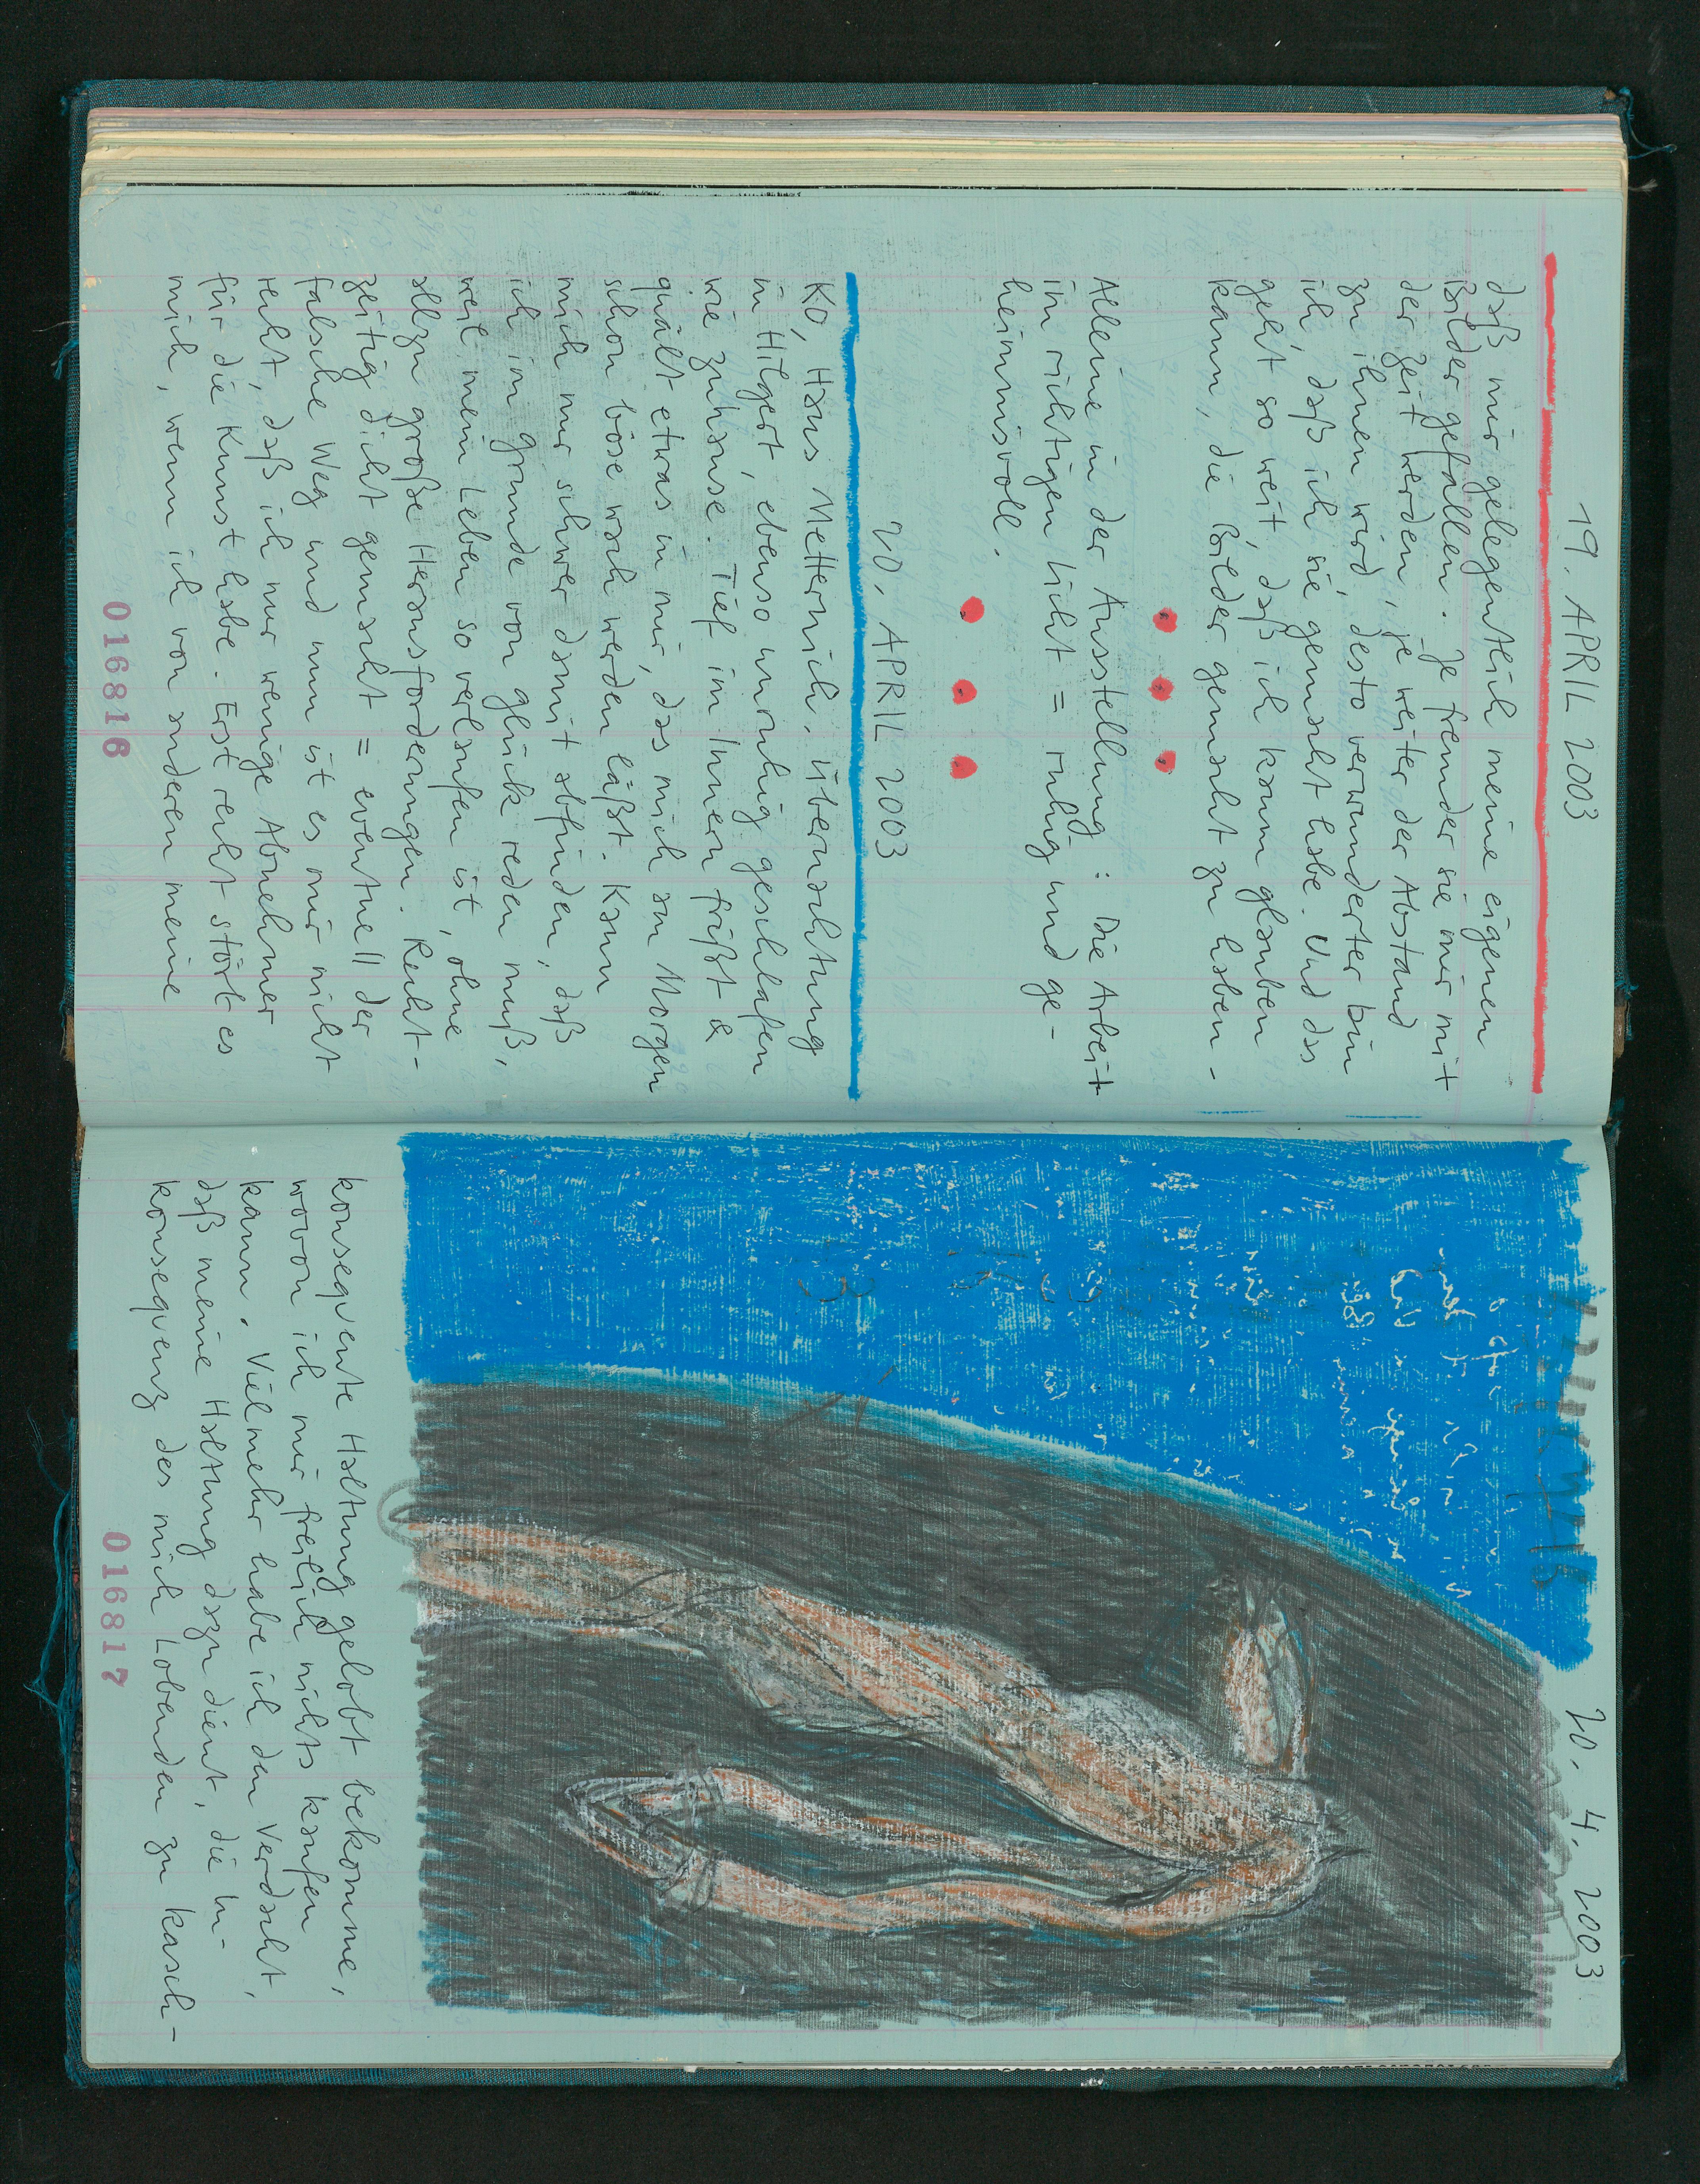 19. APRIL 2003
daß mir gelegentlich meine eigenen
Bilder gefallen. Je fremder sie mir mit
der Zeit werden, je weiter der Abstand
zu ihnen wird, desto verwunderter bin
ich, daß ich sie gemacht habe. Und das
geht so weit, daß ich kaum glauben
kann, die Bilder gemacht zu haben -
Alleine in der Ausstellung: Die Arbeit
im richtigen Licht = ruhig und ge-
heimnisvoll.
20. APRIL 2003
KO, Haus Metternich. Übernachtung
in Hilgert, ebenso unruhig geschlafen
wie zuhause. Tief im Innern frißt &
quält etwas in mir, das mich am Morgen
schon böse wach werden läßt. Kann
mich nur schwer damit abfinden, daß
ich im Grunde von Glück reden muß,
weil mein Leben so verlaufen ist, ohne
allzu große Herausforderungen. Recht-
zeitig dicht gemacht = eventuell der
falsche Weg und nun ist es mir nicht
recht, daß ich nur wenige Abnehmer
für die Kunst habe. Erst recht stört es
mich, wenn ich von anderen meine
016816
20. 4. 2003
konsequente Haltung gelobt bekomme,
wovon ich mir freilich nichts kaufen
kann. Vielmehr habe ich den Verdacht,
daß meine Haltung dazu dient, die In-
konsequenz des mich Lobenden zu kasch-
016817